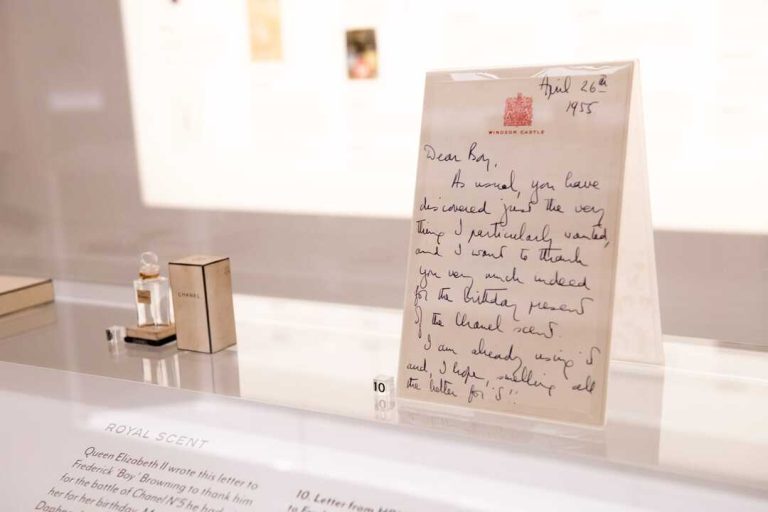 April 26th
1955
WINDSOR CASTLE
Dear Boy,
As usual, you have
discovered just the very
thing I particularly wanted,
and I want to thank
you very much indeed
for the birthday present
of the Chanel scent.
I am already using it
and, I hope, smelling all
the better for it!!
CHANEL
10
ROYAL SCENT
Queen Elizabeth II wrote this letter to
Frederick 'Boy' Browning to thank him
for the battle of Chanel N°5 he had
her for her birthday.
10. Letter from